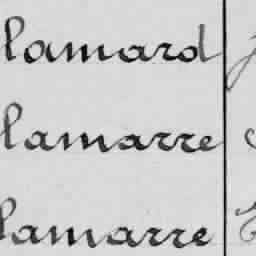 lamard
lamarre
lamarre